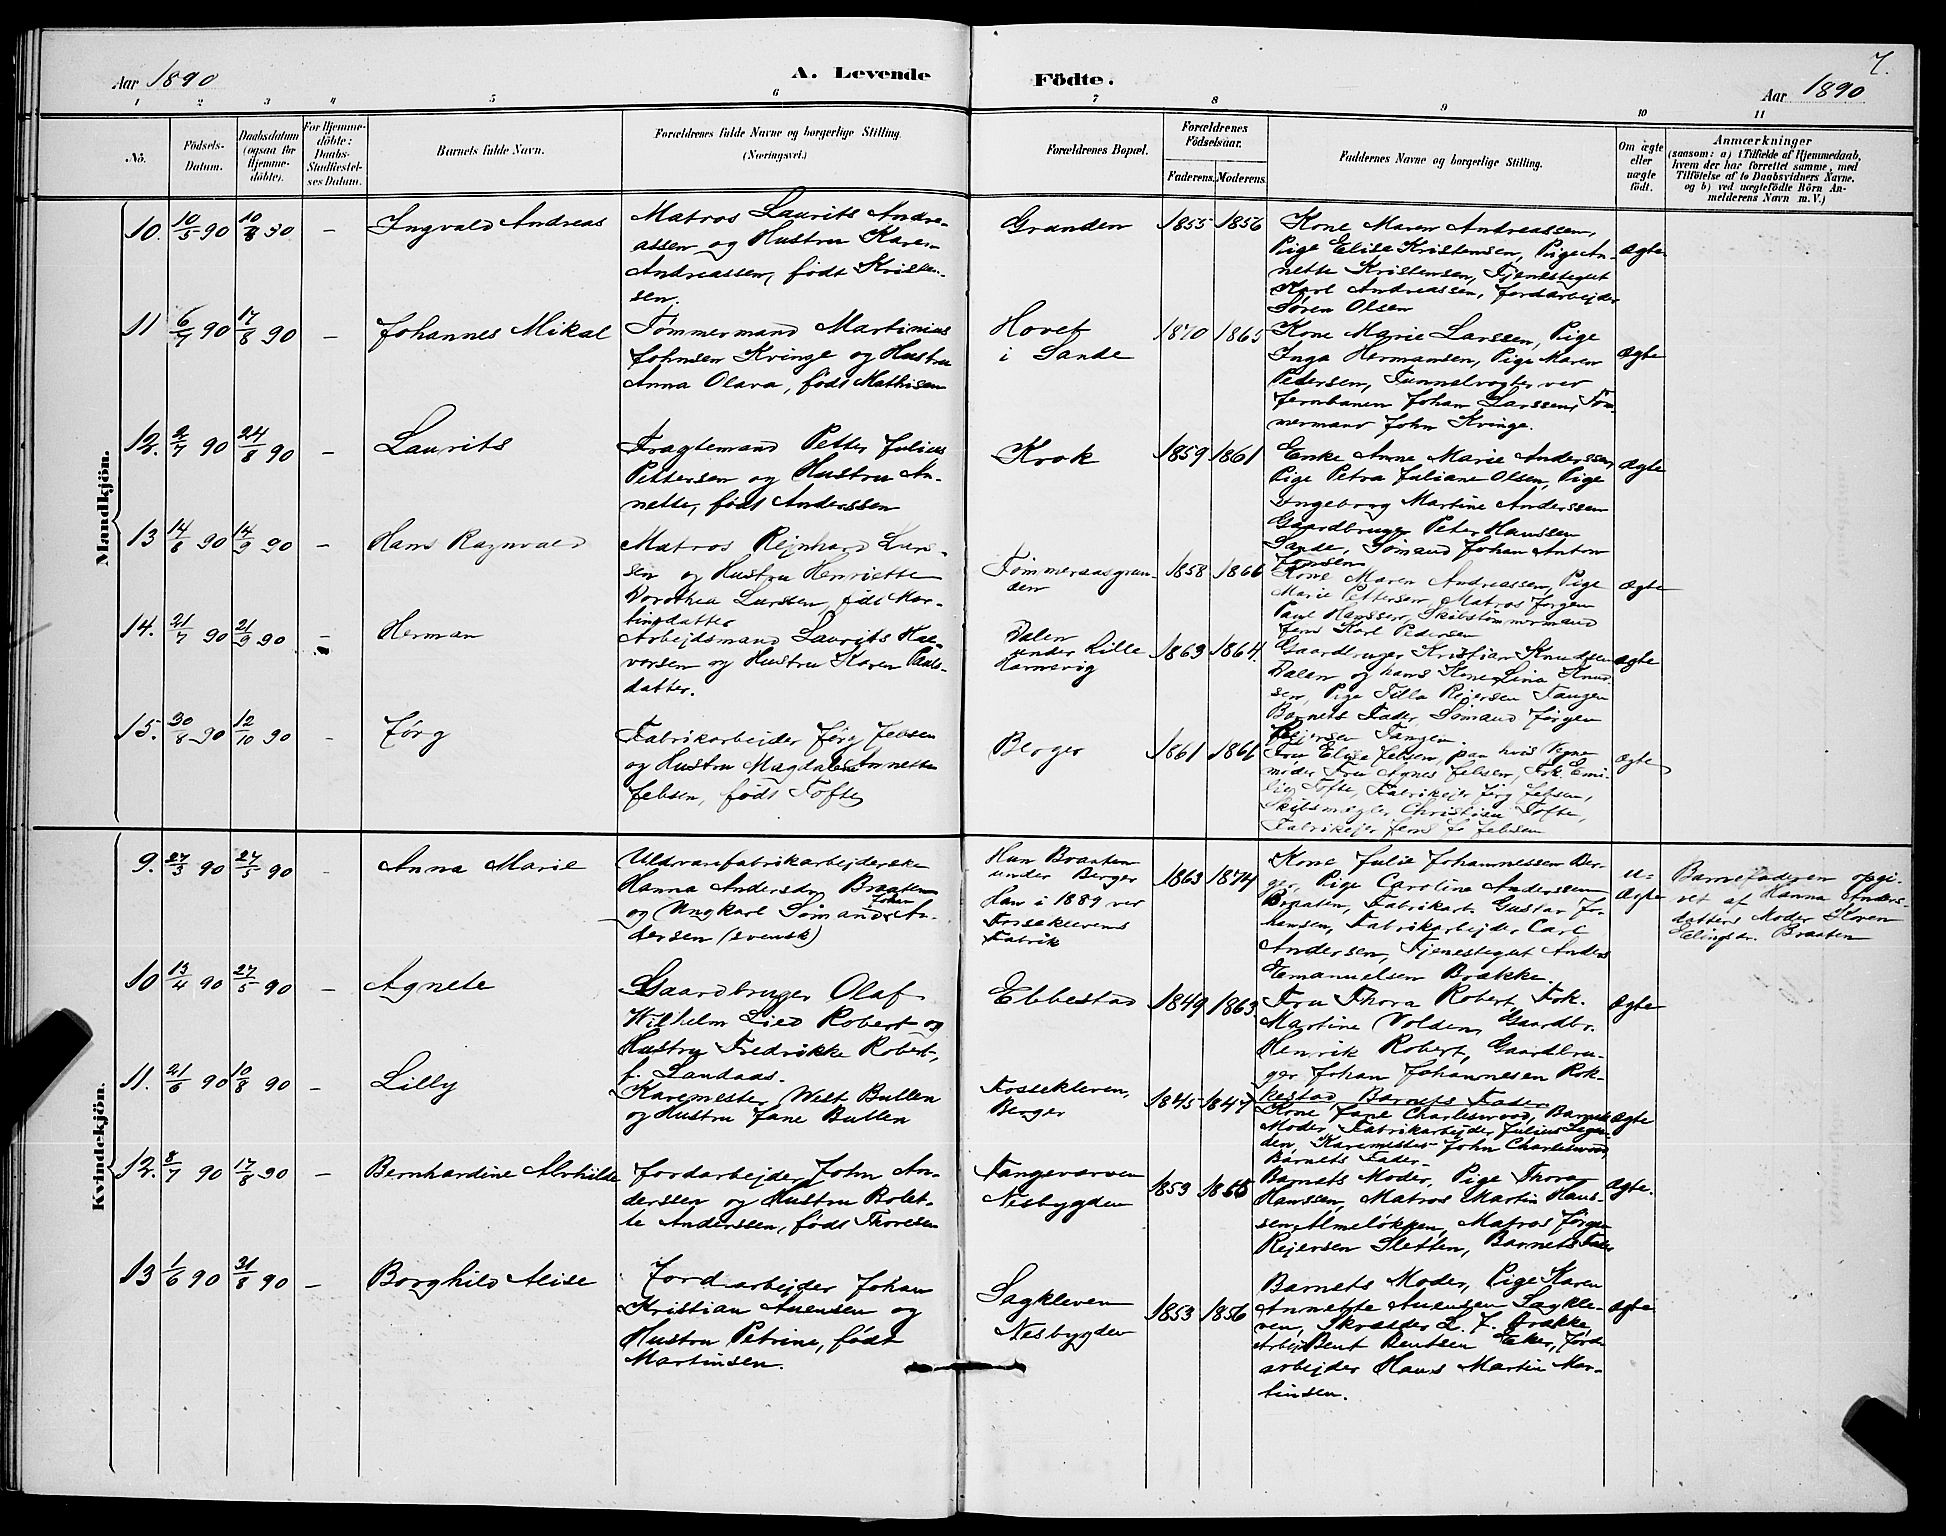 7.
Aar 1890
A. Levende
Födte.
Aar 1890
1 2 3 4 5 6 7 8 9 10 11
Nō.
Födsels-
Datum.
Daabsdatum
(ogsaa for
Hjemme-
döbte).
For Hjemme-
döbte:
Daabs-
Stadfæstel-
ses Datum.
Barnets fulde Navn.
Forældrenes fulde Navne og borgerlige Stilling.
(Næringsvei.)
Forældrenes Bopæl.
Forældrenes
Födselsaar.
Faderens. Moderens.
Faddernes Navne og borgerlige Stilling.
Om ægte
eller
uægte
födt.
Anmærkninger
(saasom: a) i Tilfælde af Hjemmedaab,
hvem der har forrettet samme, med
Tilföielse af to Daabsvidners Navne.
og b) ved uægtefödte Börn An-
melderens Navn m. V.)
Mandkjön.
10. 10/5 90 10/8 90 – Ingvald Andreas
Matros Laurits Andre-
assen og Hustru Karen
Andreassen, født Kristen-
sen.
Granden 1855 1856
Kone Maren Andreassen,
Pige Elise Kristensen, Pige An-
nette Kristensen, Tjenestegut
Karl Andreassen, Jordarbejder
Søren Olsen
ægte
11 6/7 90 17/8 90 – Johannes Mikal
Tømmermand Martinius
Johnsen Kvinge og Hustru
Anna Olava, født Mathisen
Hovet
i Sande
1870 1865
Kone Marie Larssen, Pige
Inga Hermansen, Pige Maren
Pedersen, Tunnelvogter ved
Jernbanen Johan Larssen, Tøm-
mermand John Kvinge.
ægte
12. 2/7 90 24/8 90 – Laurits
Fragtemand Petter Julius
Pettersen og Hustru An-
nette, født Anderssen
Krok 1859 1861
Enke Anne Marie Anderssen,
Pige Petra Juliane Olsen, Pige
Ingeborg Martine Anderssen
Gaardbruger Peter Hanssen
Sande, Sømand Johan Anton
Jensen
ægte
13 14/8 90 14/9 90 – Hans Ragnvald
Matros Rejnhard Lars-
sen og Hustru Henriette
Dorothea Larssen, født Mar-
tinsdatter
Tømmeraasgran-
den
1858 1866
Kone Maren Andreassen, Pige
Marie Pettersen, Matros Jørgen
Paul Hanssen, Skibstømmermand
Jens Karl Pedersen
ægte
14. 21/7 90 21/9 90 – Herman
Arbejdsmand Laurits Hal-
vorsen og Hustru Karen Pauls-
datter.
Dalen
under Lille
Hornsvig
1863 1864.
Gaardbruger Kristian Knudsen
Dalen og hans Kone Lina Knud-
sen, Pige Tilla Rejersen Tangen
Barnets Fader, Sømand Jørgen
Rejersen Tangen.
ægte
15. 30/8 90 12/10 90 – Jørg
Fabrikarbejder Jørg Jebsen
og Hustru Magdalena Annette
Jebsen, født Tofte
Berger 1861 1861
Fru Elise Jebsen, paa hvis Vegne
møder Fru Agnes Jebsen, Frk. Emi-
lie Tofte, Fabrikejer Jørg Jebsen,
Skibsmægler Christian Tofte,
Fabrikejer Jens J. Jebsen
ægte
Kvindekjön.
9. 27/3 90 27/5 90 – Anna Marie
Uldvarefabrikarbejderske
Hanna Andersdr. Braaten
og Ungkarl Sømand Johan An-
dersen (svensk)
Hun Braaten
under Berger
Han i 1889 ved
Fosseklevens
Fabrik
1863 1874
Kone Julie Johannessen Ber-
ger, Pige Caroline Anderssen
Braaten, Fabrikarb. Gustav Jo-
hansen, Fabrikarbejder Carl
Andersen, Tjenestegut Anders
Emanuelsen Brække.
u-
ægte
Barnefaderen opgi-
vet af Hanna Anders-
datters Moder Karen
Elingsdr. Braaten
10 13/4 90 27/5 90 – Agnete
Gaardbruger Olaf
Wilhelm Lied Robert og
Hustru Fredrikke Robert,
f. Landaas.
Ebbestad 1849 1863
Fru Thora Robert, Frk.
Martine Volden, Gaardbr.
Henrik Robert, Gaardbru-
ger Johan Johannesen Rok-
kestad, Barnets Fader
ægte
11. 21/6 90 10/8 90 – Lilly
Karemester Welt Bullen
og Hustru Jane Bullen
Fossekleven,
Berger
1845 1847
Kone Jane Charleswood, Barnets
Moder, Fabrikarbejder Julius
Karemester John Charleswood,
Barnets Fader.
ægte
12. 8/7 90 17/8 90 – Bernhardine Alvhilde
Jordarbejder John An-
derssen og Hustru Bolet-
te Anderssen, født Thoresen
Tangevarven
Nesbygden
1853 1855
Barnets Moder, Pige Thora
Hanssen, Matros Martin Hans-
sen Almeløkken, Matros Jørgen
Rejersen Sletten, Barnets Fader
ægte.
13 1/6 90 31/8 90 – Borghild Alise
Jordarbejder Johan
Kristian Auensen og
Hustru Petrine, født
Martinsen.
Sagkleven
Nesbygden
1853 1856
Barnets Moder, Pige Karen
Annette Auensen Sagkle-
ven, Skrædder L. J. Brække
Arbejd. Bent Bentsen Eker, Jord-
arbejder Hans Martin Mar-
tinsen.
ægte